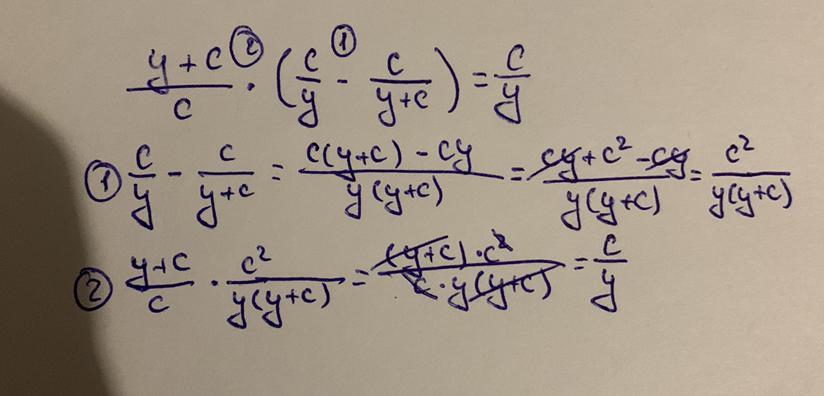 (y+c)/c ②· (c/y ①- c/(y+c)) = c/y
① c/y - c/(y+c) = (c(y+c) - cy)/(y(y+c)) = (cy + c² - cy)/(y(y+c)) = c²/(y(y+c))
② (y+c)/c · c²/(y(y+c)) = ((y+c)·c²)/(c·y(y+c)) = c/y